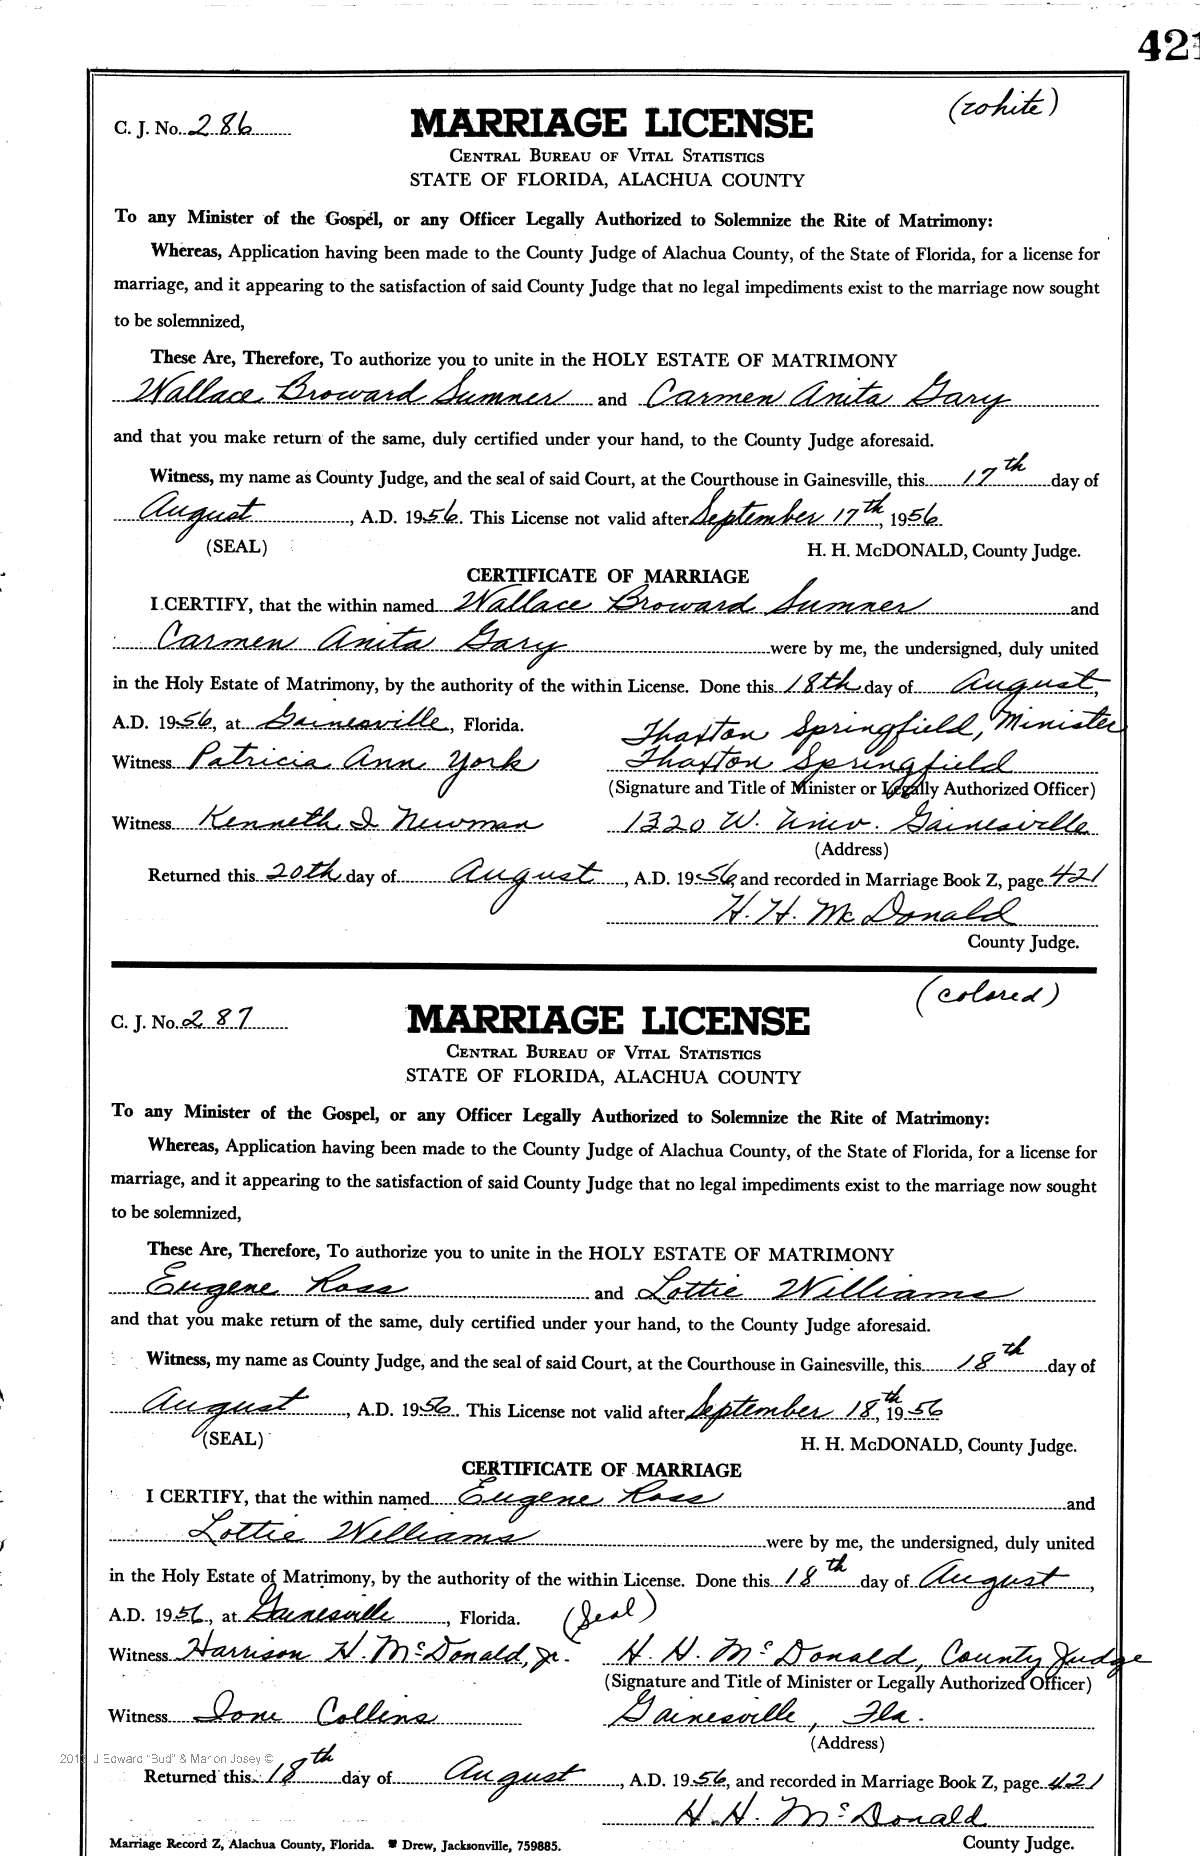 421
(white)
C. J. No. 286
MARRIAGE LICENSE
CENTRAL BUREAU OF VITAL STATISTICS
STATE OF FLORIDA, ALACHUA COUNTY
To any Minister of the Gospel, or any Officer Legally Authorized to Solemnize the Rite of Matrimony:
Whereas, Application having been made to the County Judge of Alachua County, of the State of Florida, for a license for
marriage, and it appearing to the satisfaction of said County Judge that no legal impediments exist to the marriage now sought
to be solemnized,
These Are, Therefore, To authorize you to unite in the HOLY ESTATE OF MATRIMONY
Wallace Broward Sumner and Carmen Anita Gary
and that you make return of the same, duly certified under your hand, to the County Judge aforesaid.
Witness, my name as County Judge, and the seal of said Court, at the Courthouse in Gainesville, this 17th day of
August, A.D. 1956. This License not valid after September 17th, 1956
(SEAL) H. H. McDONALD, County Judge.
CERTIFICATE OF MARRIAGE
I CERTIFY, that the within named Wallace Broward Sumner and
Carmen Anita Gary were by me, the undersigned, duly united
in the Holy Estate of Matrimony, by the authority of the within License. Done this 18th day of August,
A.D. 1956, at Gainesville, Florida. Thaxton Springfield, Minister
Witness Patricia Ann York Thaxton Springfield
(Signature and Title of Minister or Legally Authorized Officer)
Witness Kenneth I Newman 1320 W. Univ. Gainesville
(Address)
Returned this 20th day of August, A.D. 1956, and recorded in Marriage Book Z, page 421
H. H. McDonald
County Judge.
(colored)
C. J. No. 287
MARRIAGE LICENSE
CENTRAL BUREAU OF VITAL STATISTICS
STATE OF FLORIDA, ALACHUA COUNTY
To any Minister of the Gospel, or any Officer Legally Authorized to Solemnize the Rite of Matrimony:
Whereas, Application having been made to the County Judge of Alachua County, of the State of Florida, for a license for
marriage, and it appearing to the satisfaction of said County Judge that no legal impediments exist to the marriage now sought
to be solemnized,
These Are, Therefore, To authorize you to unite in the HOLY ESTATE OF MATRIMONY
Eugene Ross and Lottie Williams
and that you make return of the same, duly certified under your hand, to the County Judge aforesaid.
Witness, my name as County Judge, and the seal of said Court, at the Courthouse in Gainesville, this 18th day of
August, A.D. 1956. This License not valid after September 18th, 1956
(SEAL) H. H. McDONALD, County Judge.
CERTIFICATE OF MARRIAGE
I CERTIFY, that the within named Eugene Ross and
Lottie Williams were by me, the undersigned, duly united
in the Holy Estate of Matrimony, by the authority of the within License. Done this 18th day of August,
A.D. 1956, at Gainesville, Florida. (Seal)
Witness Harrison H. McDonald, Jr. H. H. McDonald, County Judge
(Signature and Title of Minister or Legally Authorized Officer)
Witness Ione Collins Gainesville, Fla.
(Address)
J Edward "Bud" & Marion Josey ©
Returned this 18th day of August, A.D. 1956, and recorded in Marriage Book Z, page 421
H. H. McDonald
Marriage Record Z, Alachua County, Florida. Drew, Jacksonville, 759885. County Judge.